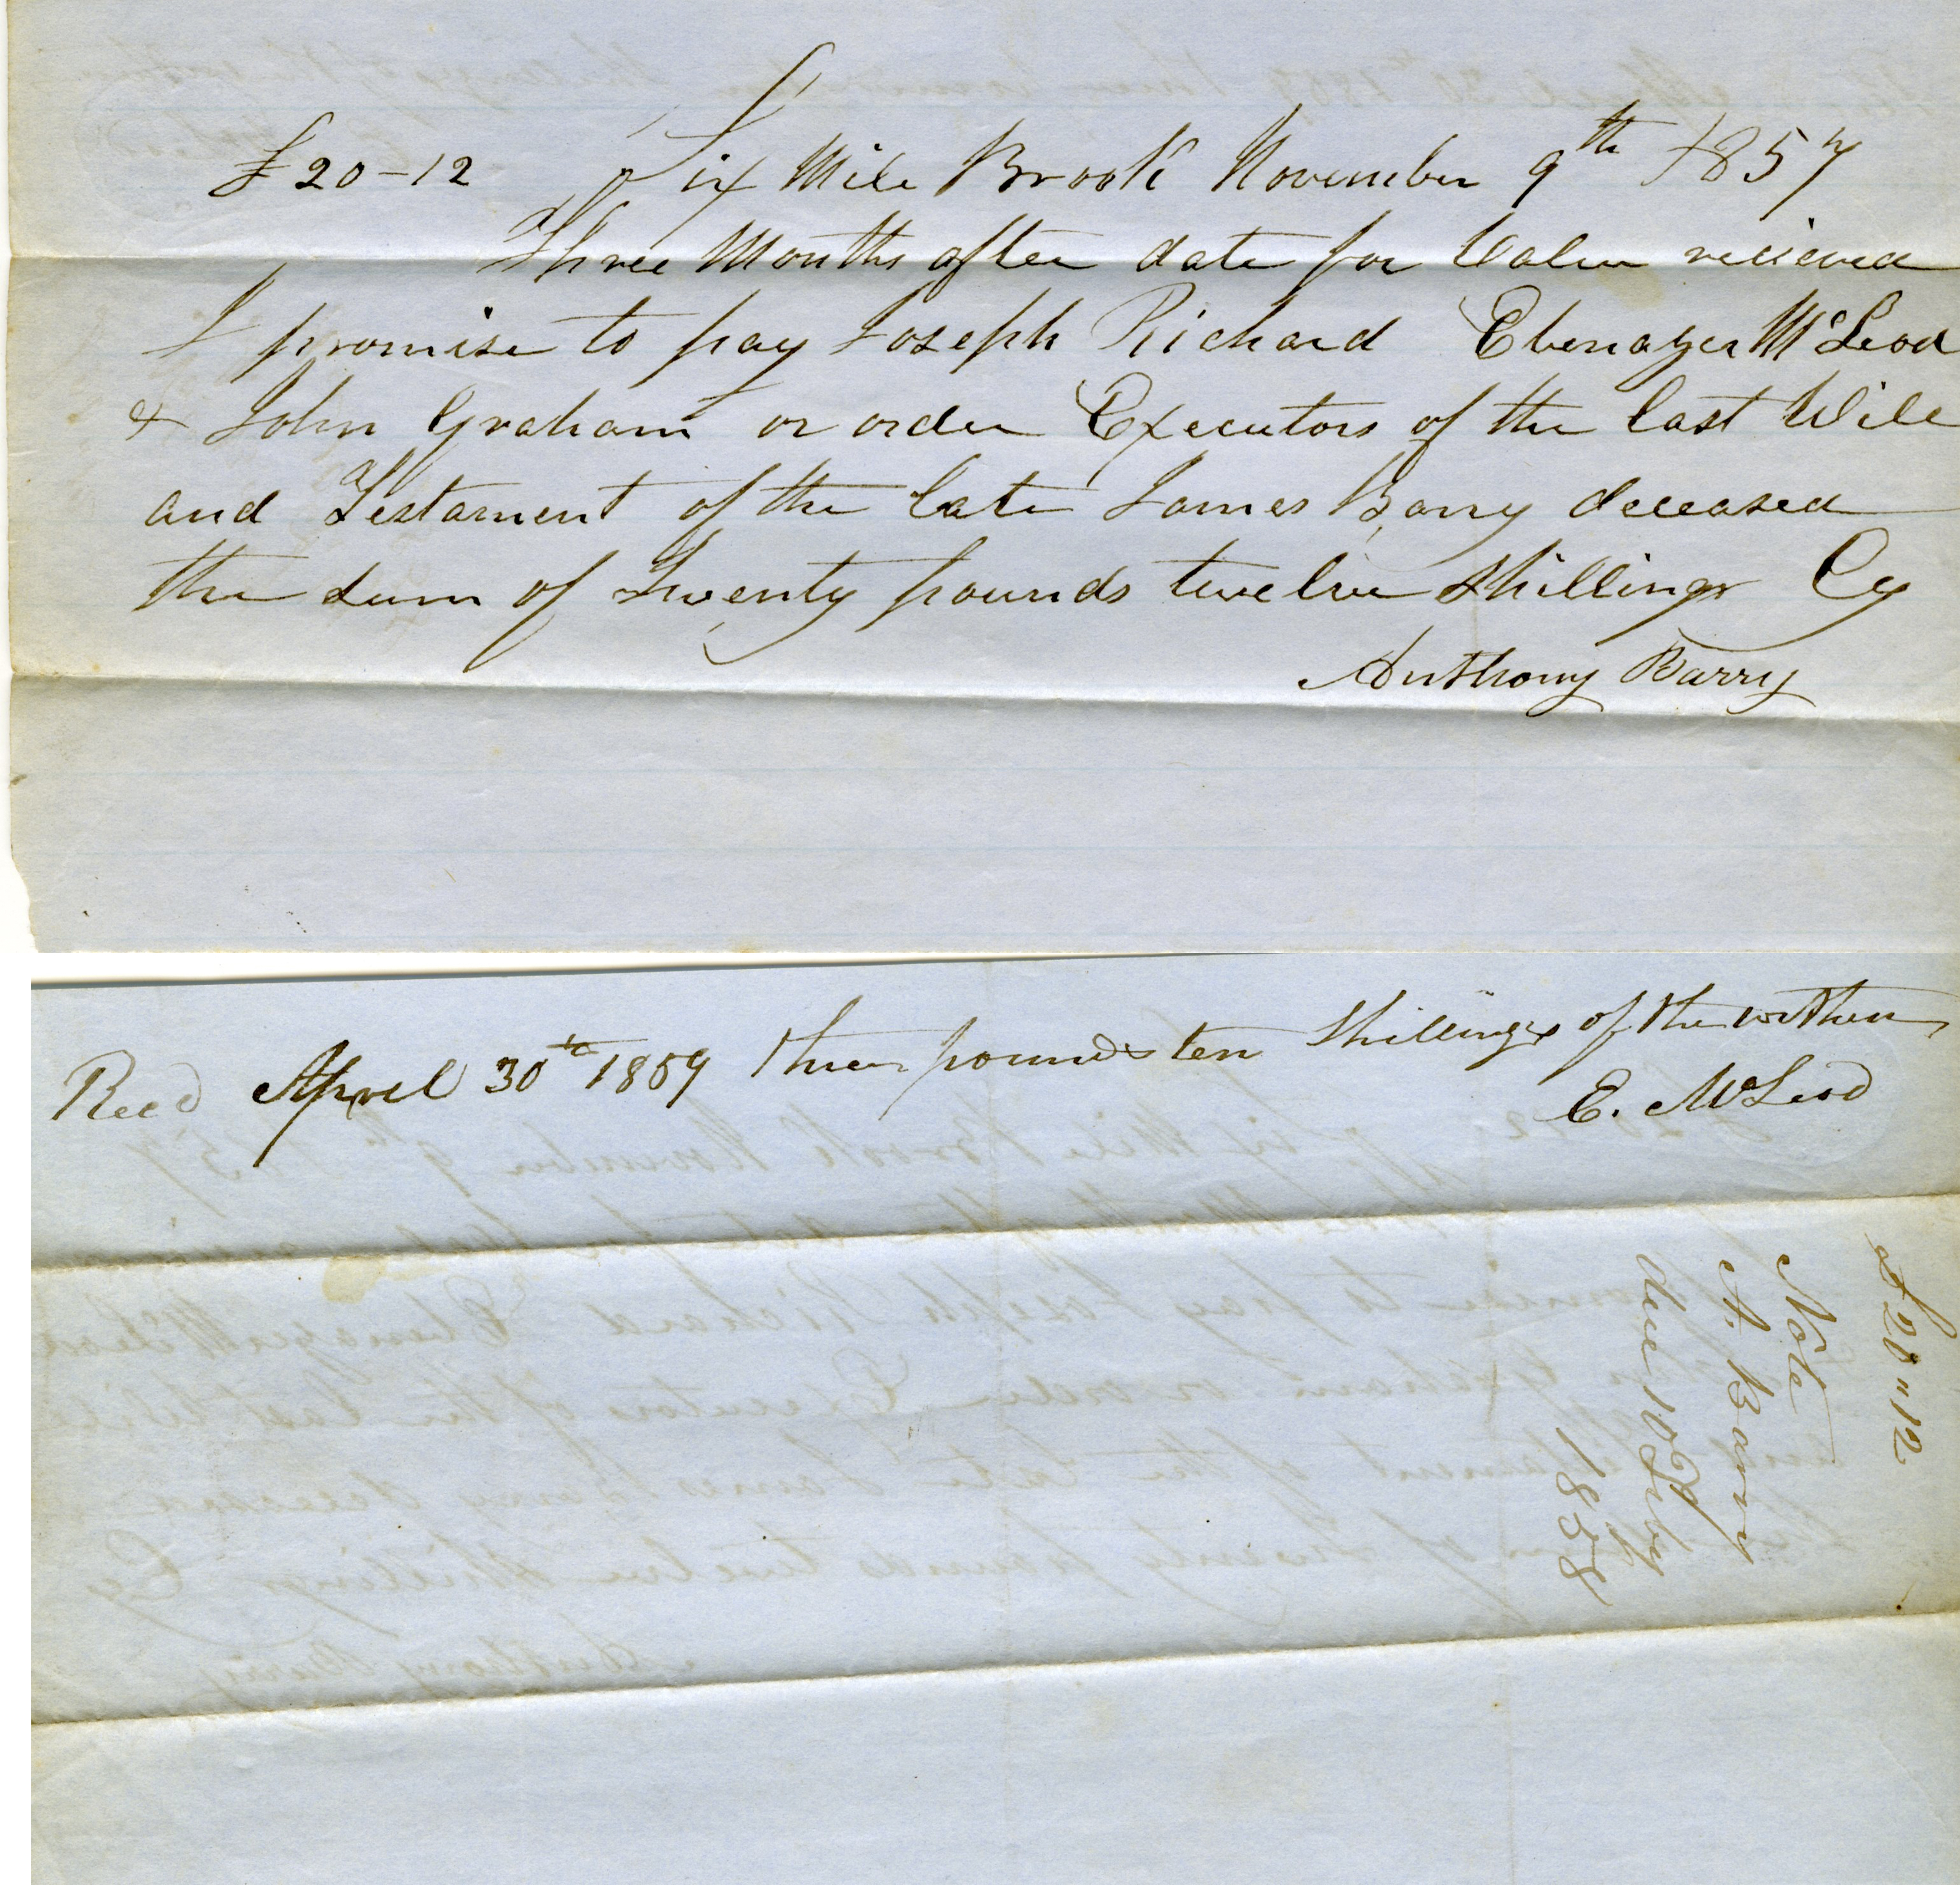 £20-12 Six Mile Brook November 9th 1857
Three Months after date for Value recieved
I promise to pay Joseph Richard Ebenazer McLeod
& John Graham or order Executors of the last Will
and Testament of the late James Barry deceased
the sum of Twenty pounds twelve shillings Cy
Anthony Barry
Recd April 30th 1859 three pounds ten shillings of the within
E. McLeod
£20"12
Note
A. Barry
due 10 Feby
1858